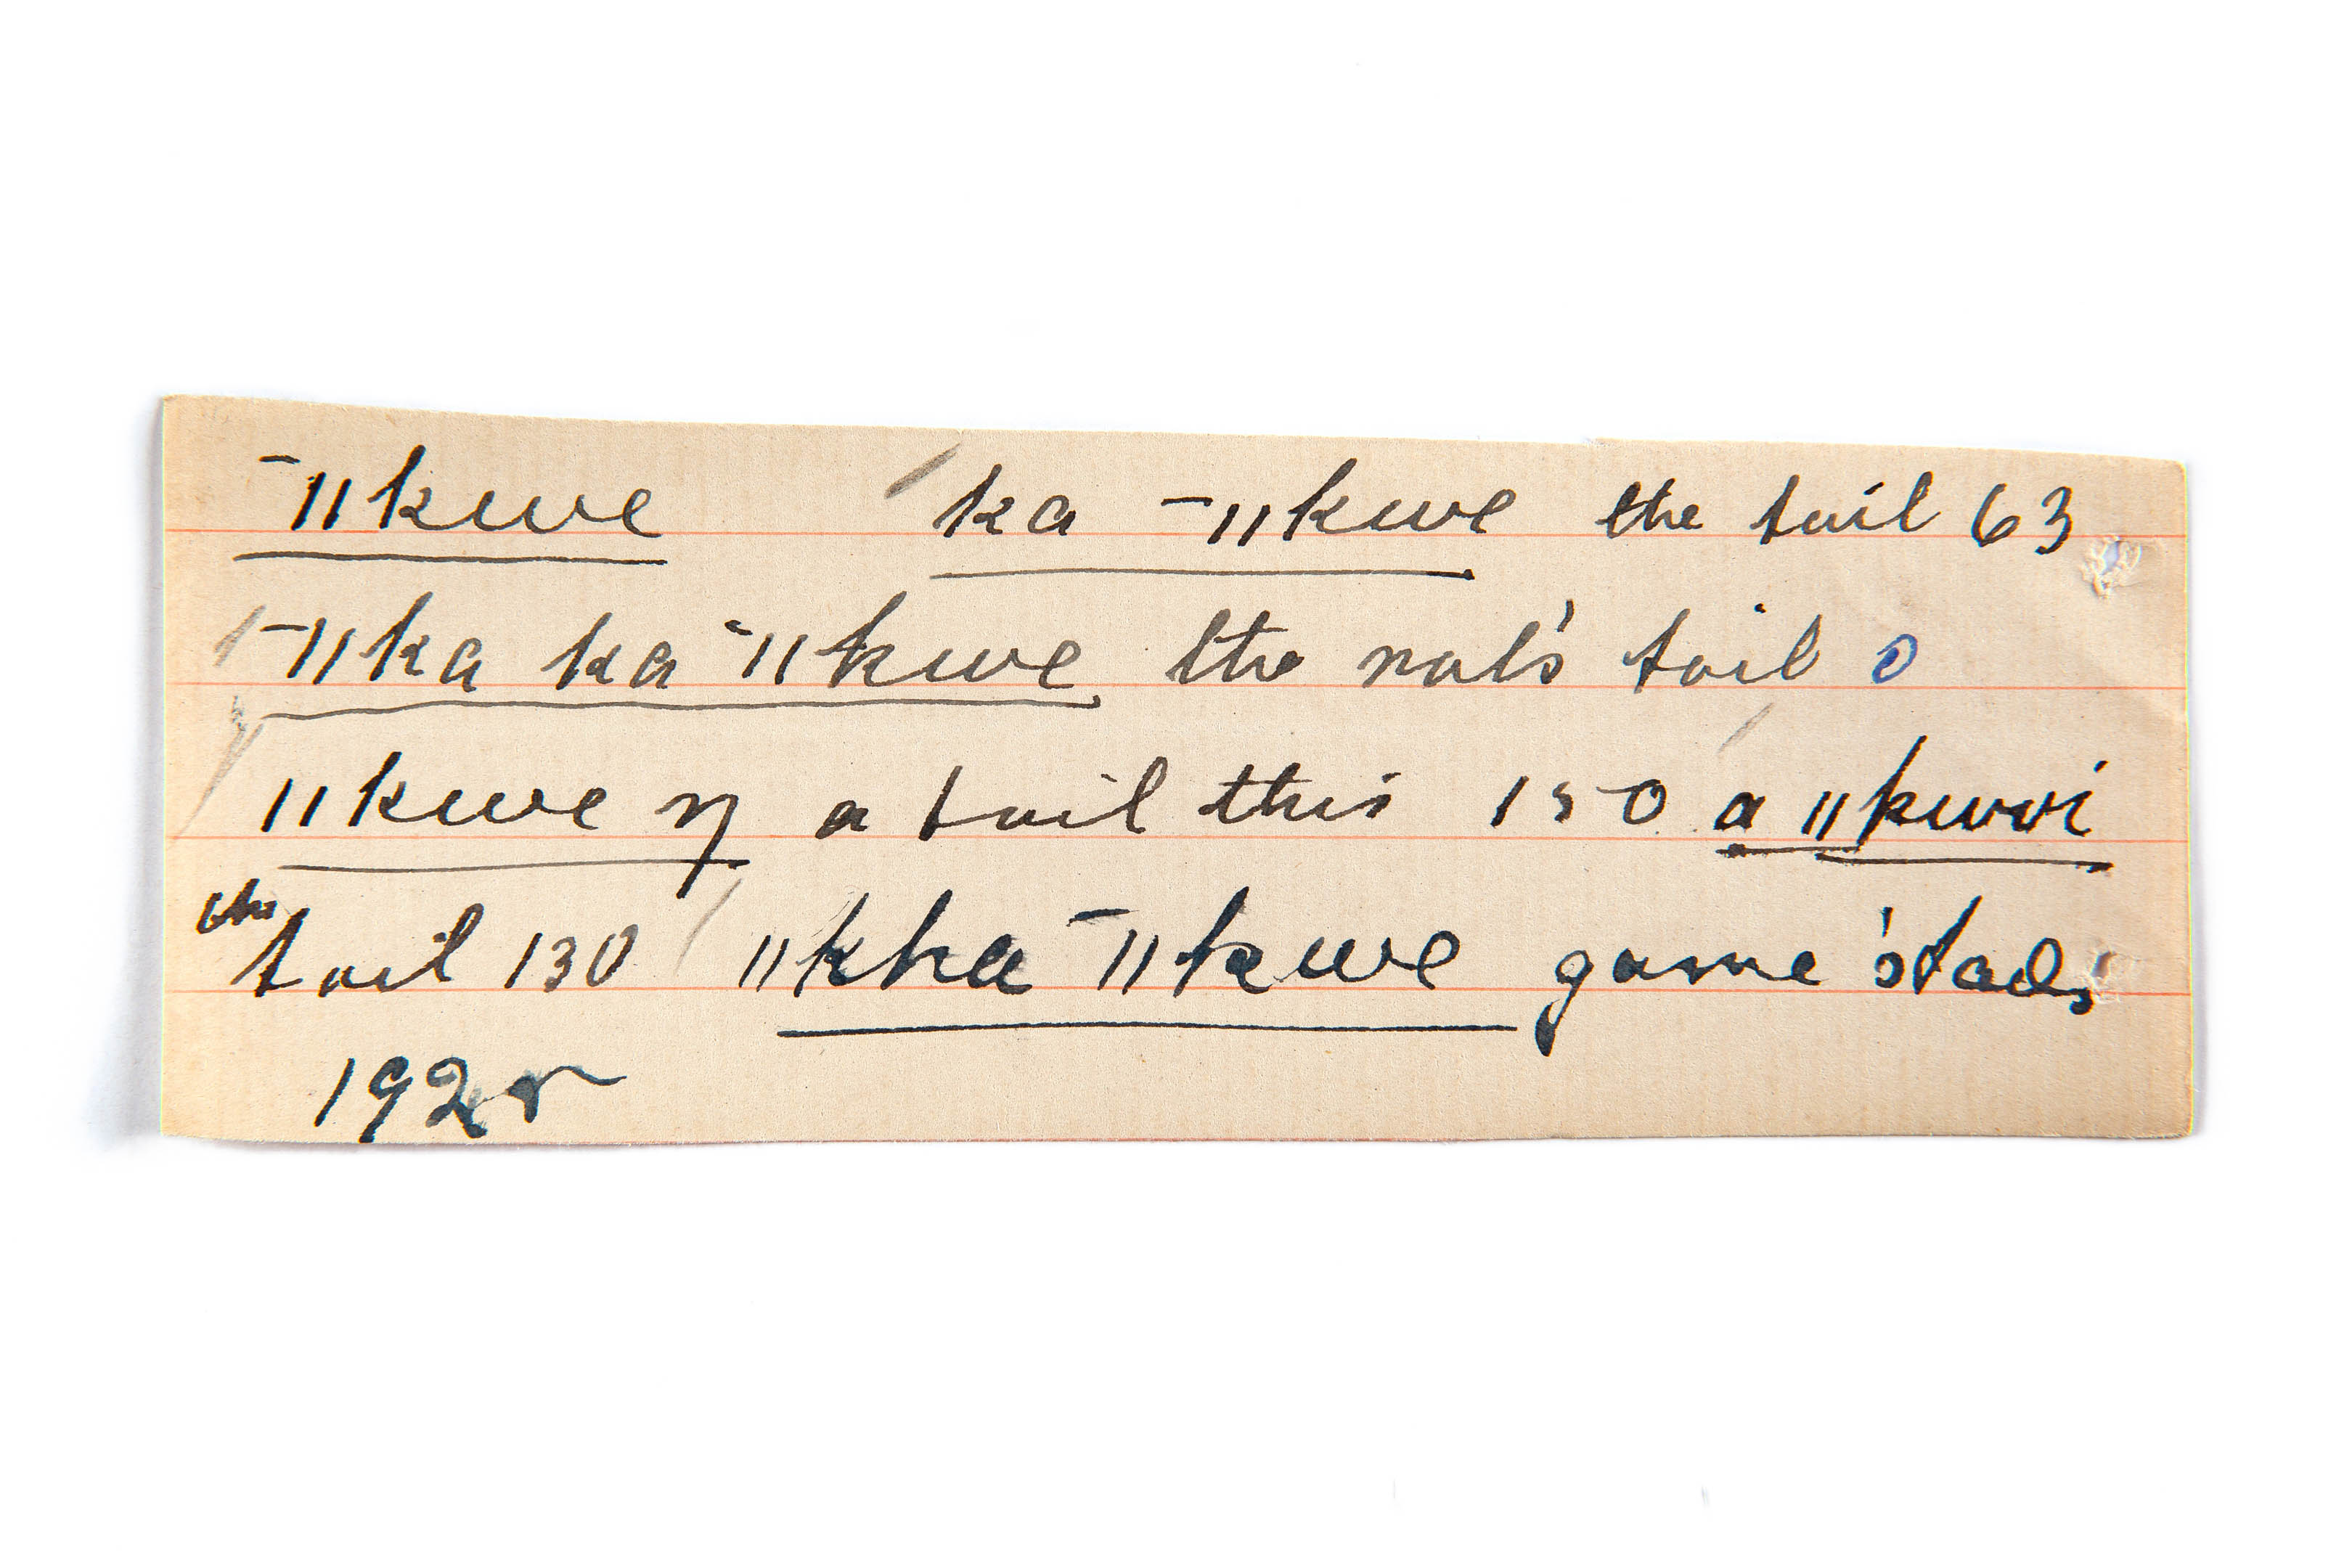 ¯ǁkwe ka ¯ǁkwe the tail 63
¯ǁka ka ¯ǁkwe the rat's tail 0
ǁkwe ŋ a tail this 150 a ǁkwoi
the tail 130 ǁkha ¯ǁkwe game's
192